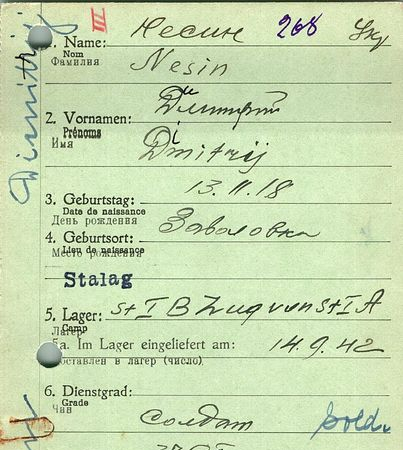 III
Несин 268 Укр
1. Name: Nesin
Nom
Фамилия
2. Vornamen: Дмитрий
Prénoms Dimitrij
Имя
3. Geburtstag: 13.11.18
Date de naissance
День рождения
4. Geburtsort: Заваловка
Lieu de naissance
Место рождения
Stalag
5. Lager: St I B Zug von St I A
Camp
Лагерь
5a. Im Lager eingeliefert am: 14.9.42
Доставлен в лагерь (число)
6. Dienstgrad:
Grade
Чин солдат Sold.
Dimitrij